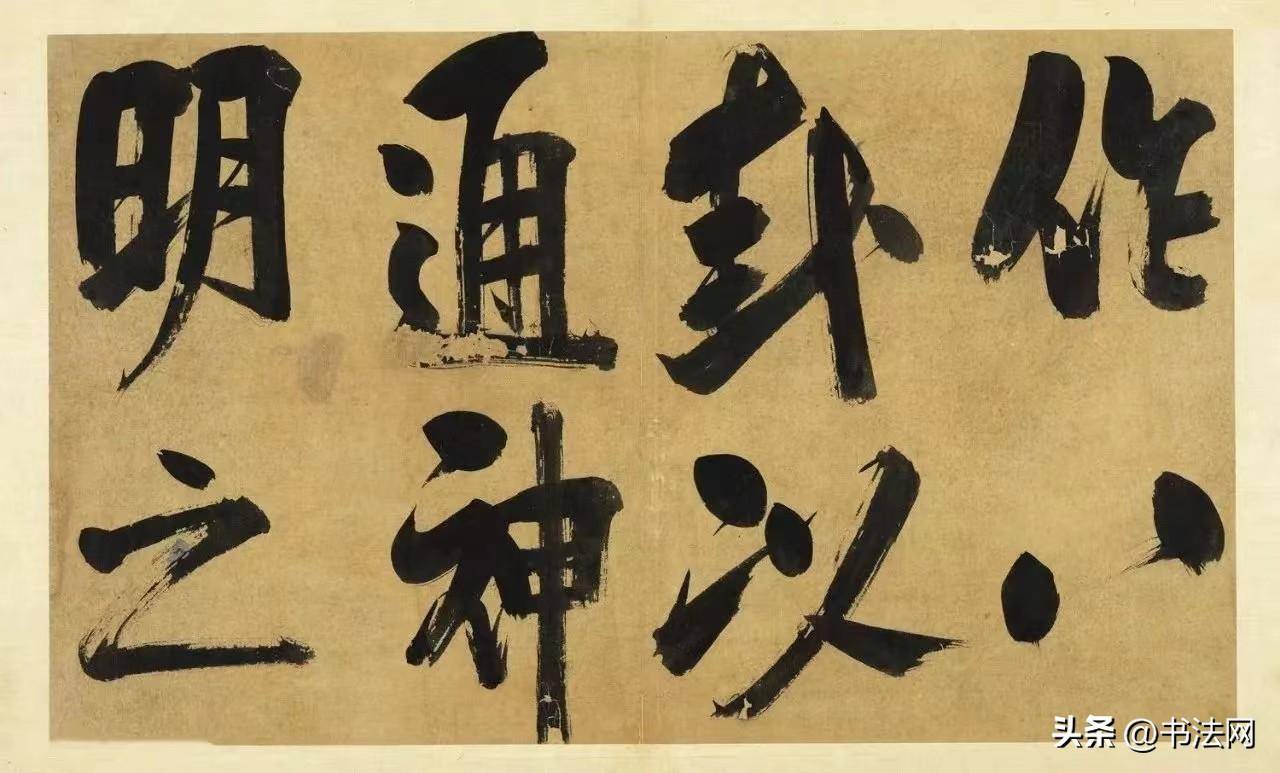 作八
卦以
通神
明之
头条 @书法网